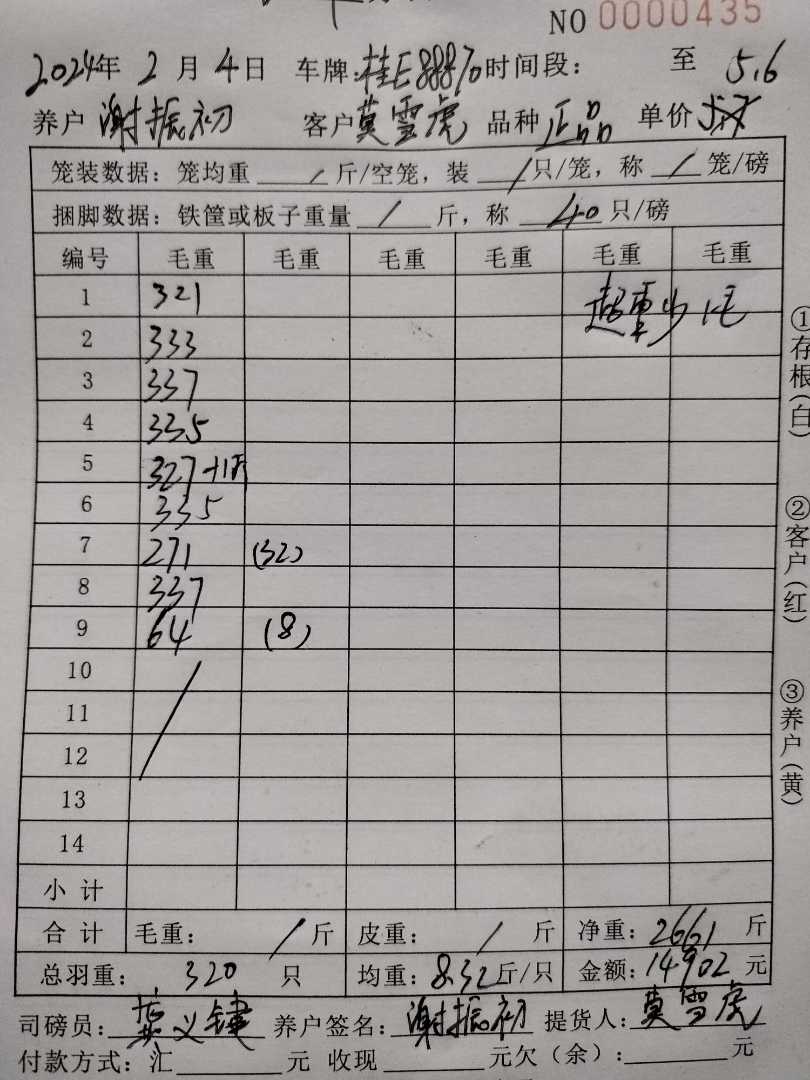 NO 0000435
2024年 2 月 4 日 车牌:桂E88870 时间段: 至 5.6
养户 谢振初 客户 莫雪虎 品种 正品 单价
笼装数据: 笼均重 / 斤/空笼, 装 / 只/笼, 称 / 笼/磅
捆脚数据: 铁筐或板子重量 / 斤, 称 40 只/磅
编号 毛重 毛重 毛重 毛重 毛重 毛重
1 321 超重少1毛
2 333
3 337
4 335
5 327+1斤
6 335
7 271 (32)
8 337
9 64 (8)
10
11
12
13
14
小 计
合 计 毛重: / 斤 皮重: / 斤 净重: 2661 斤
总羽重: 320 只 均重: 8.32 斤/只 金额: 14902 元
司磅员: 义键 养户签名: 谢振初 提货人: 莫雪虎
付款方式: 汇 元 收现 元欠(余): 元
①存根(白)
②客户(红)
③养户(黄)